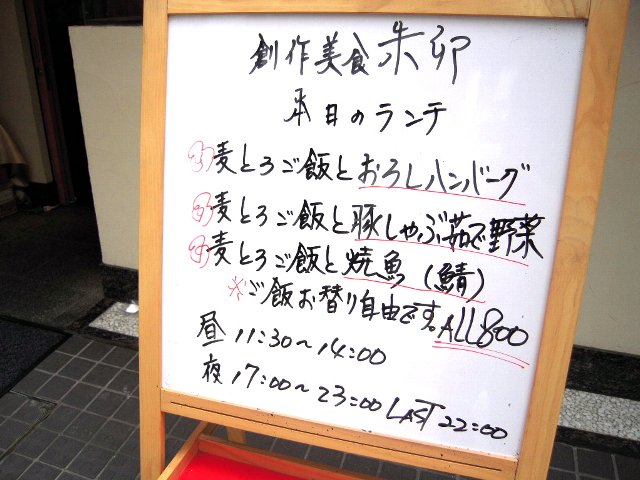 創作美食 朱卯
本日のランチ
麦とろご飯とおろしハンバーグ
麦とろご飯と豚しゃぶ茹で野菜
麦とろご飯と焼魚(鯖)
※ご飯お替り自由です。ALL800
昼 11:30~14:00
夜 17:00~23:00 LAST 22:00